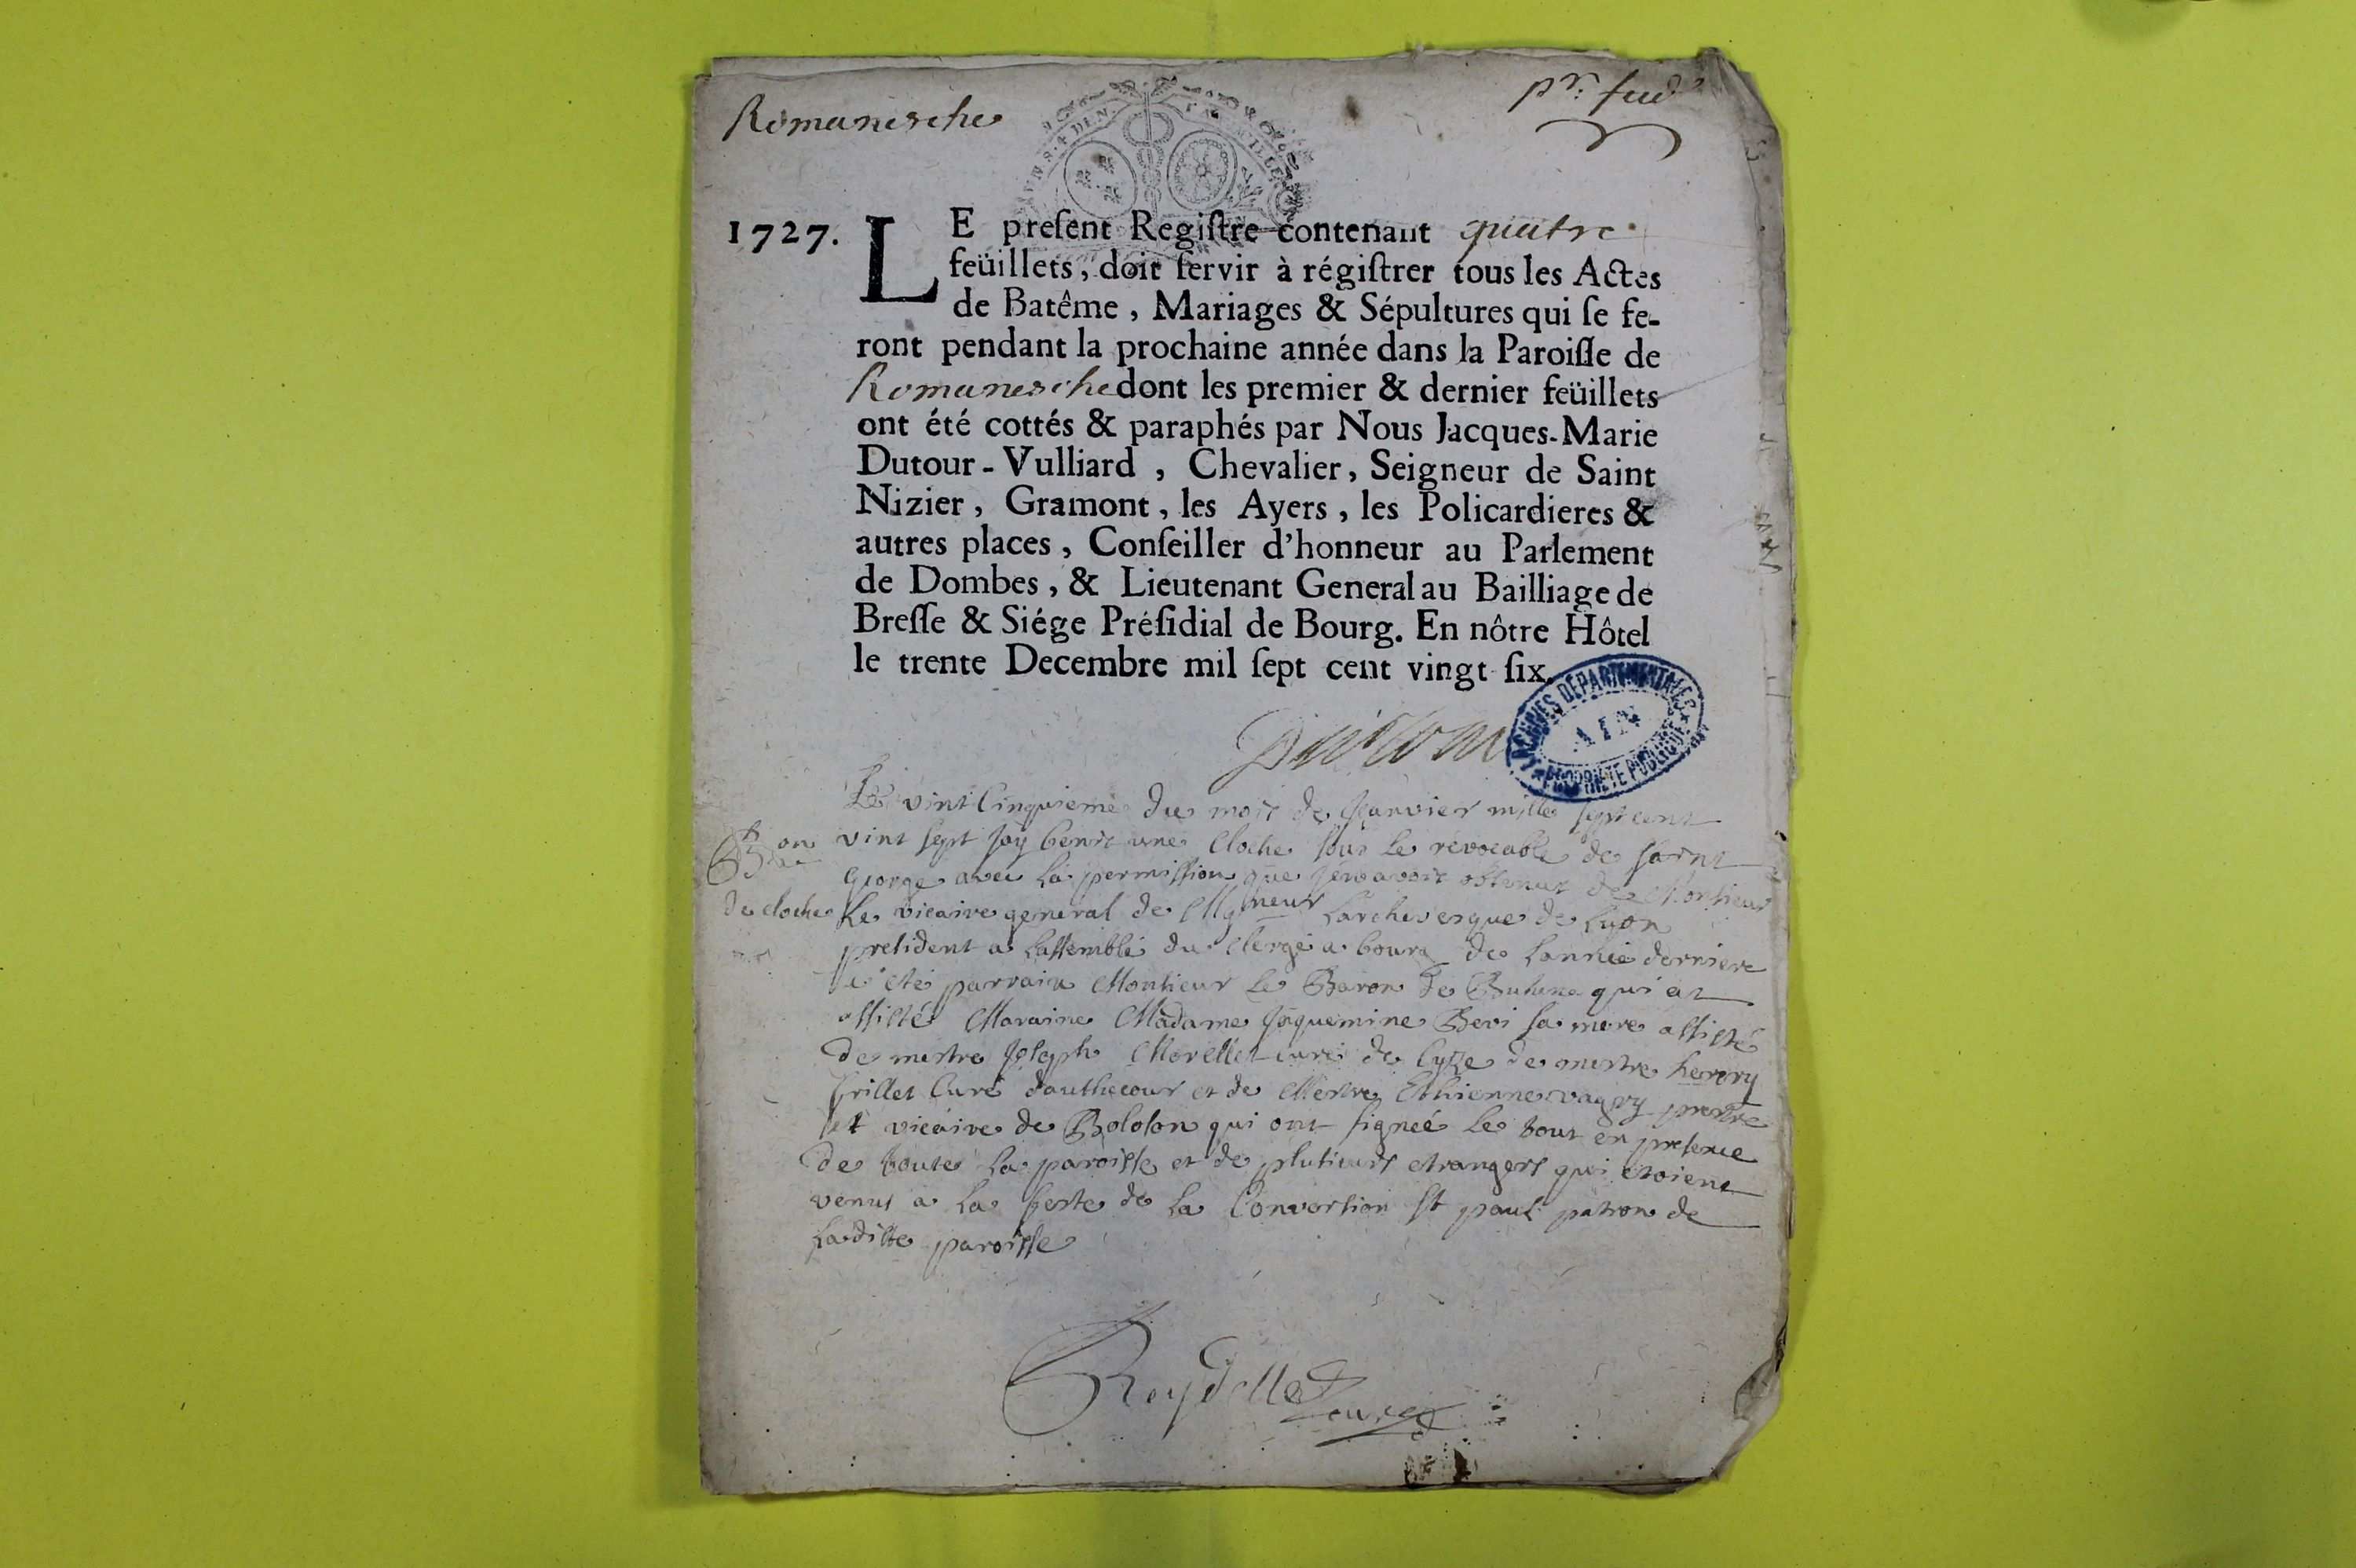 Romanesche
pr. feud
1727.
LE preſent Regiſtre contenant quatre
feüillets, doit ſervir à régiſtrer tous les Actes
de Batême, Mariages & Sépultures qui ſe fe-
ront pendant la prochaine année dans la Paroiſſe de
Romanesche dont les premier & dernier feüillets
ont été cottés & paraphés par Nous Jacques-Marie
Dutour-Vulliard, Chevalier, Seigneur de Saint
Nizier, Gramont, les Ayers, les Policardieres &
autres places, Conſeiller d'honneur au Parlement
de Dombes, & Lieutenant General au Bailliage de
Breſſe & Siége Préſidial de Bourg. En nôtre Hôtel
le trente Decembre mil ſept cent vingt ſix.
Dutour
ARCHIVES DÉPARTEMENTALES
AIN
PROPRIÉTÉ PUBLIQUE
Le vint Cinquieme du mois de Janvier mille sept cent
vint sept jay benit une Cloche sous le revocable de saint
George avec la permission que j'en avois obtenue de Monsieur
de cloche
Le vicaire general de Mgneur Larchevesque de Lyon
president a Lassemblé du Clergé a bourg de Lannée derniere
a eté parrain Monsieur Le Baron de qui at
assisté Maraine Madame Jaquemine Bevi sa mere assisté
de mestre Joseph Morellet curé de Cyze de mestre henry
Grillet Curé et de Mestre Ethienne vagry prestre
et vicaire de Boloson qui ont signée Le tout en presence
de toute La paroisse et de plusieurs etrangers qui etoient
venus a La feste de La Conversion St paul patron de
Laditte paroisse
Reydellet
curé